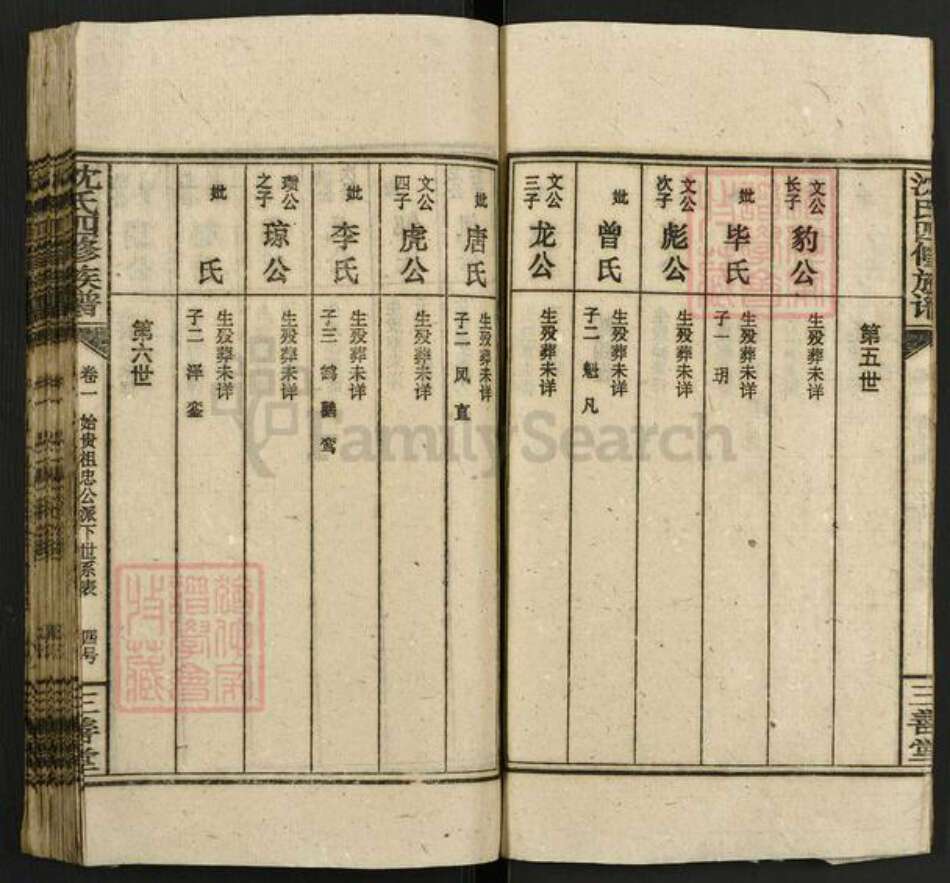 沈氏四修族谱
三善堂
第五世
文公长子 豹公 生殁葬未详
妣 毕氏 生殁葬未详 子一 玥
文公次子 彪公 生殁葬未详
妣 曾氏 生殁葬未详 子二 魁 凡
文公三子 龙公 生殁葬未详
妣 唐氏 生殁葬未详 子二 风 直
文公四子 虎公 生殁葬未详
妣 李氏 生殁葬未详 子三 鸾
瓒公之子 琼公 生殁葬未详
妣 氏 生殁葬未详 子二 泽 銮
第六世
沈氏四修族谱
卷一 始贵祖忠公派下世系表 四号
三善堂
FamilySearch